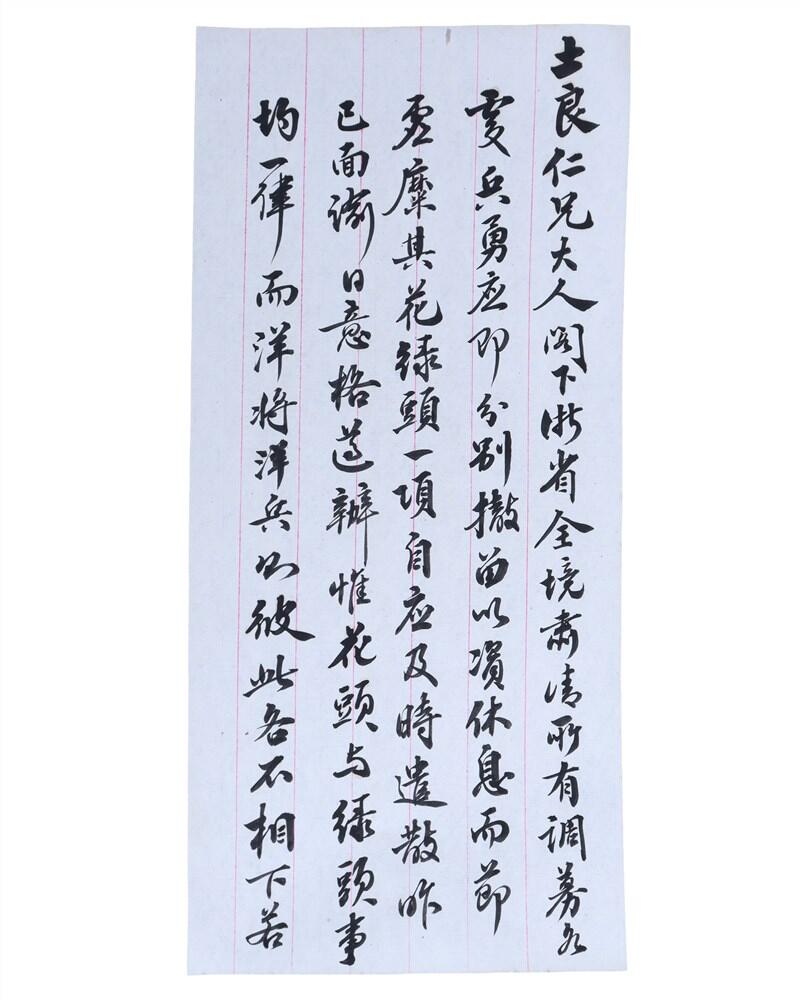 士良仁兄大人阁下浙省全境肃清所有调募各
处兵勇应即分别撤留以资休息而节
虚糜其花绿頭一项自应及時遣散昨
已面谕日意格遵辦惟花頭与绿頭事
均一律而洋将洋兵则彼此各不相下若